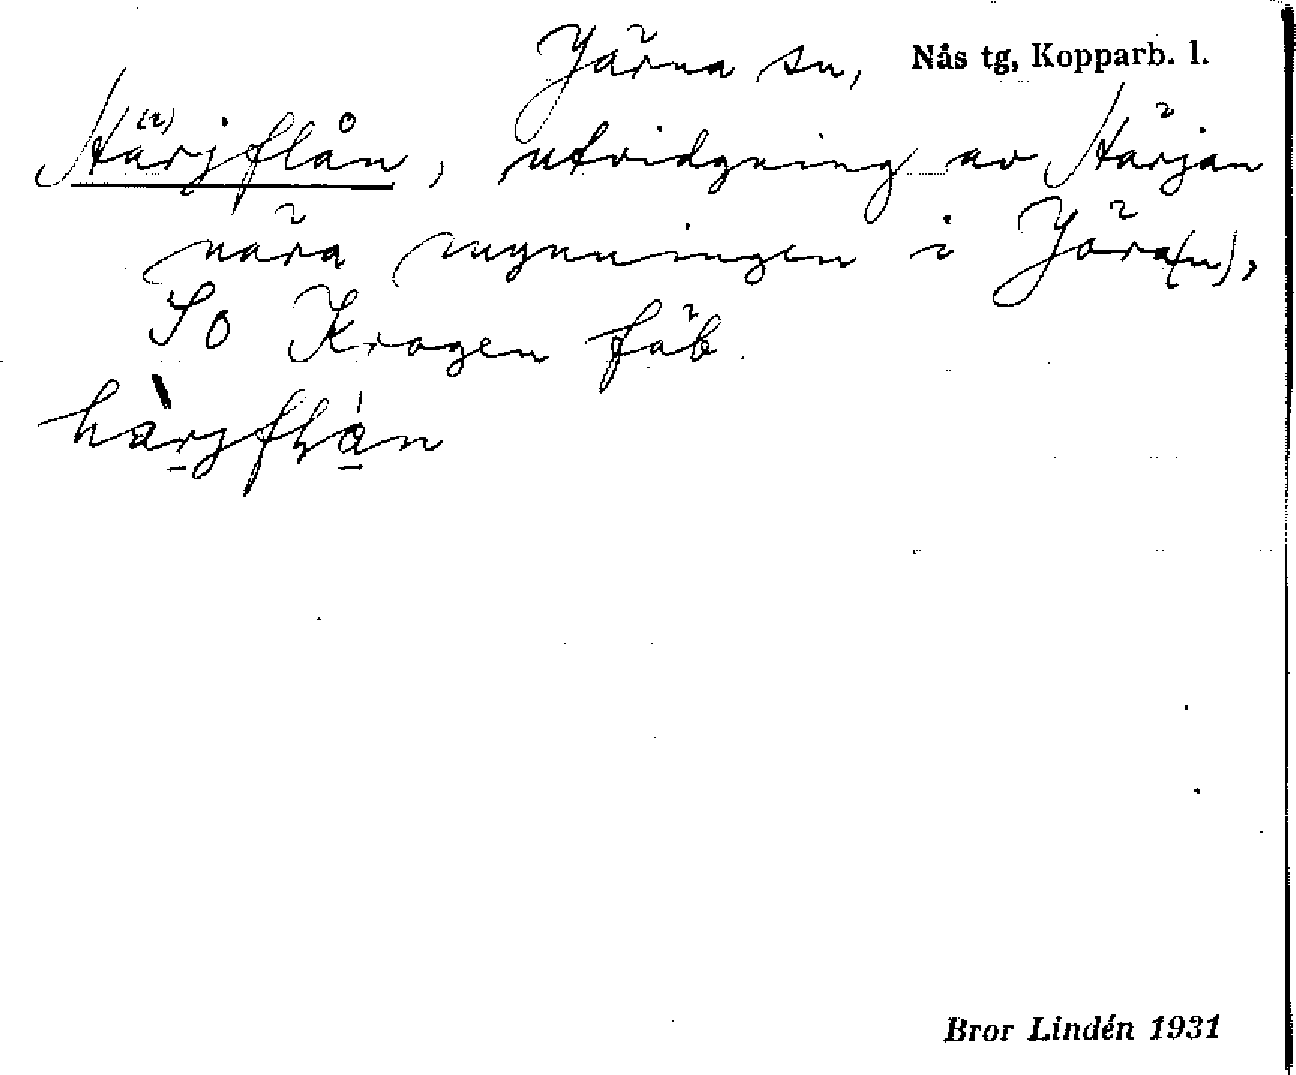 Järna sn, Nås tg, Kopparb. l.
Härjflån, utvidgning av Härjan
nära mynningen i Jöra(n),
SO Kragen fäb.
härjflån
Bror Lindén 1931